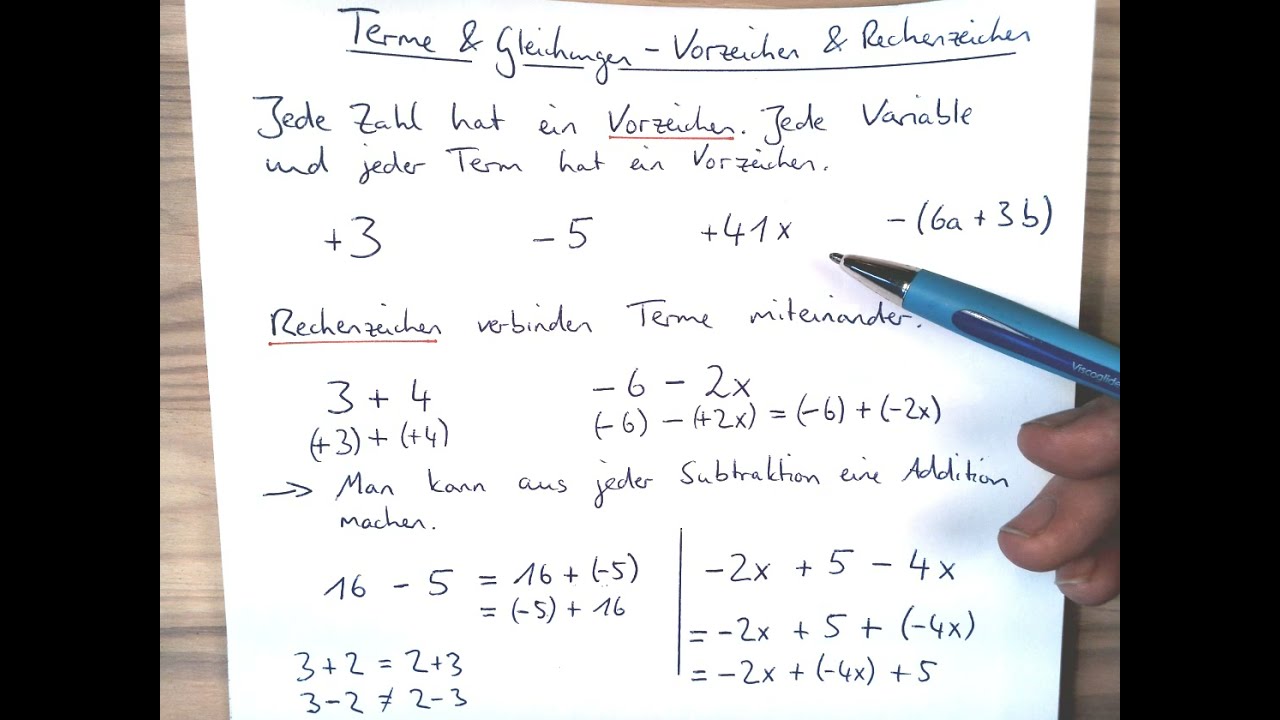 Terme & Gleichungen – Vorzeichen & Rechenzeichen
Jede Zahl hat ein Vorzeichen. Jede Variable
und jeder Term hat ein Vorzeichen.
+3 −5 +41x −(6a+3b)
Rechenzeichen verbinden Terme miteinander.
3 + 4 −6 − 2x
(+3) + (+4) (−6) − (+2x) = (−6) + (−2x)
→ Man kann aus jeder Subtraktion eine Addition
machen.
16 − 5 = 16 + (−5)
= (−5) + 16
3+2 = 2+3
3−2 ≠ 2−3
−2x + 5 − 4x
= −2x + 5 + (−4x)
= −2x + (−4x) + 5
Viscoglide